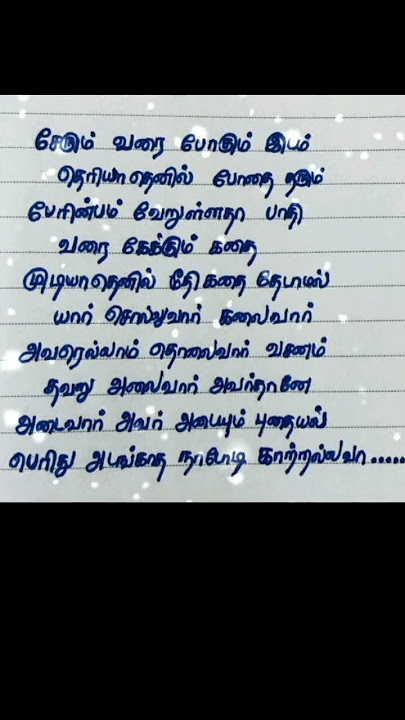 சேரும் வரை போகும் இடம்
தெரியாதெனில் போதை தரும்
பேரின்பம் வேறுள்ளதா பாதி
வரை கேக்கும் கதை
முடியாதெனில் மீதி கதை தேடாமல்
யார் சொல்லுவார் கலைவார்
அவரெல்லாம் தொலைவார் வசனம்
தவறு அலைவார் அவர்தானே
அடைவார் அவர் அடையும் புதையல்
பெரிது அடங்காத நாடோடி காற்றல்லவா.....